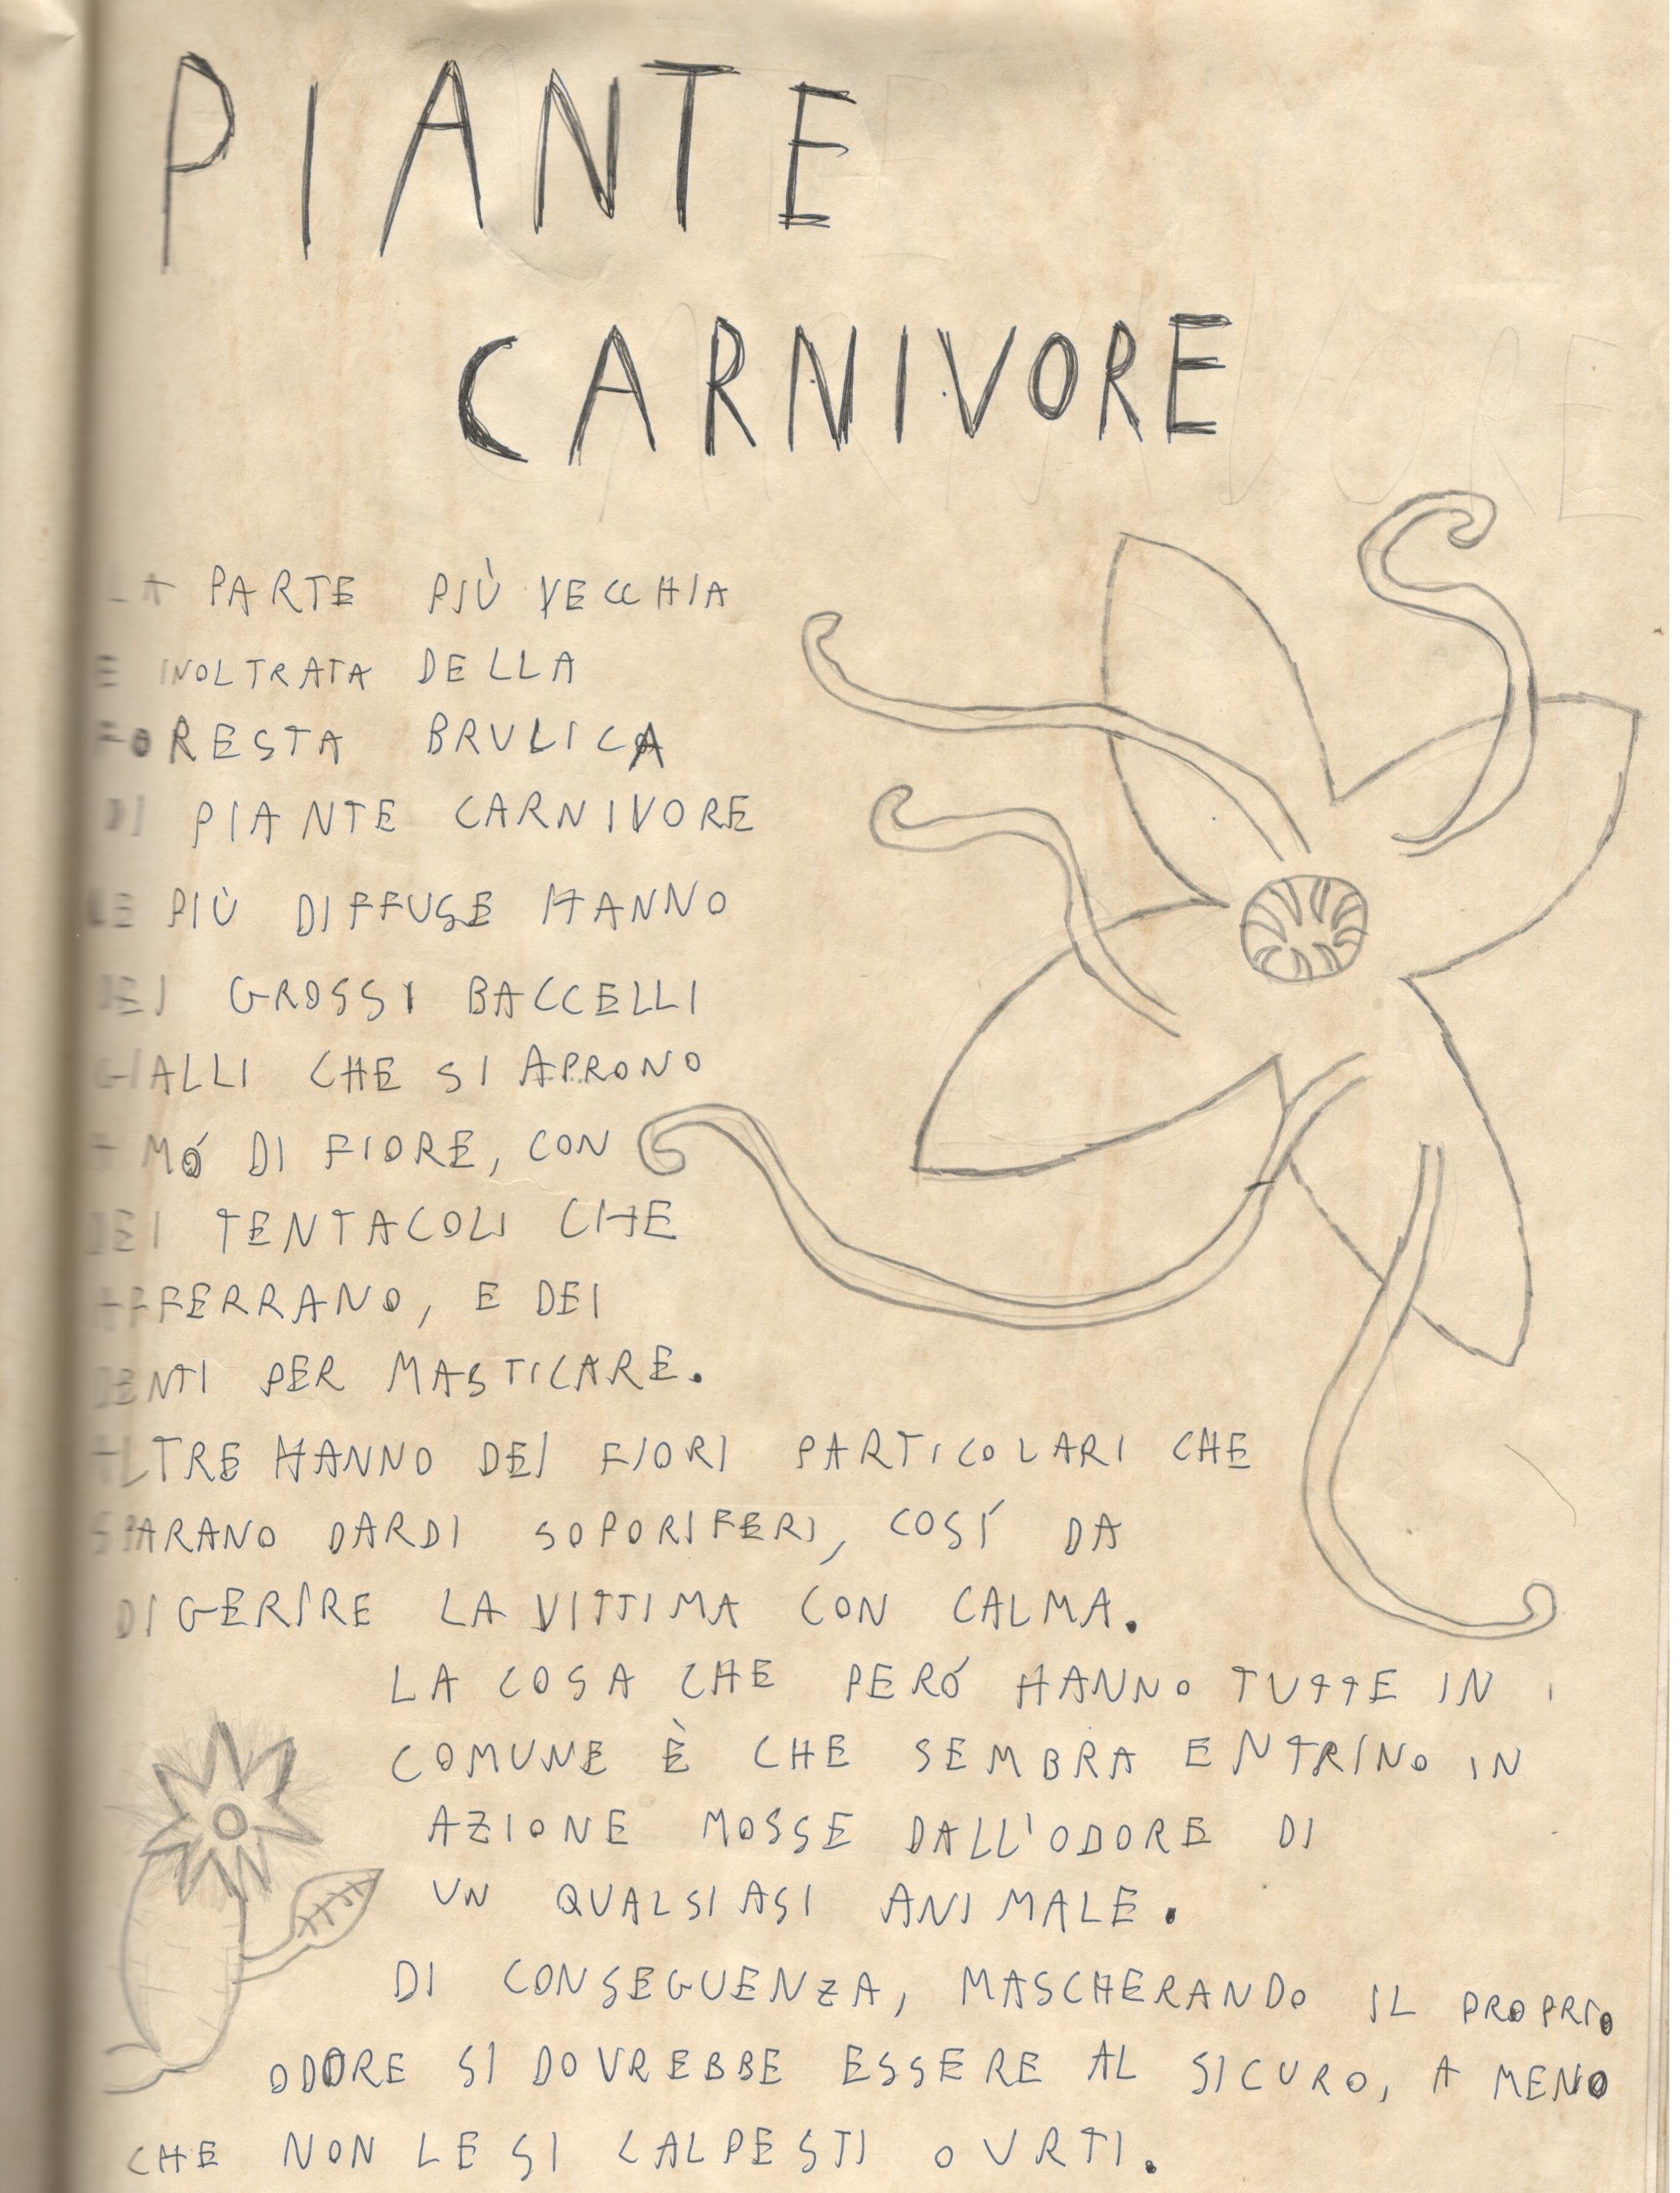 PIANTE
CARNIVORE
LA PARTE PIÙ VECCHIA
E INOLTRATA DELLA
FORESTA BRULICA
DI PIANTE CARNIVORE
LE PIÙ DIFFUSE HANNO
DEI GROSSI BACCELLI
GIALLI CHE SI APRONO
A MÓ DI FIORE, CON
DEI TENTACOLI CHE
AFFERRANO, E DEI
DENTI PER MASTICARE.
ALTRE HANNO DEI FIORI PARTICOLARI CHE
SPARANO DARDI SOPORIFERI, COSÍ DA
DIGERIRE LA VITTIMA CON CALMA.
LA COSA CHE PERÓ HANNO TUTTE IN
COMUNE È CHE SEMBRA ENTRINO IN
AZIONE MOSSE DALL'ODORE DI
UN QUALSIASI ANIMALE.
DI CONSEGUENZA, MASCHERANDO IL PROPRIO
ODORE SI DOVREBBE ESSERE AL SICURO, A MENO
CHE NON LE SI CALPESTI O URTI.